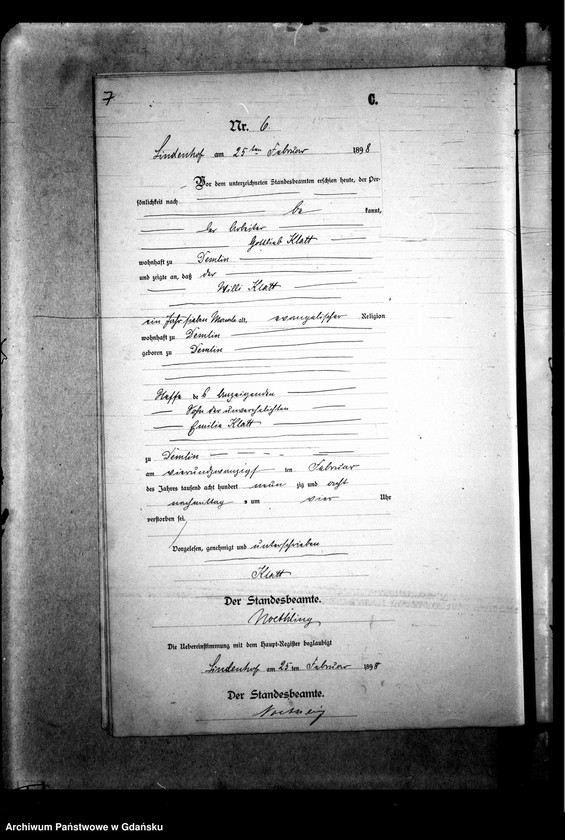 7
C.
Nr. 6.
Lindenhof am 25ten Februar 1898
Vor dem unterzeichneten Standesbeamten erschien heute, der Per-
sönlichkeit nach
be kannt,
der Arbeiter
Gottlieb Klatt
wohnhaft zu Demlin
und zeigte an, daß der
Willi Klatt
ein Jahr sieben Monate alt, evangelischer Religion
wohnhaft zu Demlin
geboren zu Demlin
Neffe des Anzeigenden
Sohn der unverehelichten
Emilie Klatt
zu Demlin
am vierundzwanzigsten Februar
des Jahres tausend acht hundert neunzig und acht
nachmittags um vier Uhr
verstorben sei.
Vorgelesen, genehmigt und unterschrieben
Klatt
Der Standesbeamte.
Noethling
Die Uebereinstimmung mit dem Haupt-Register beglaubigt
Lindenhof am 25ten Februar 1898
Der Standesbeamte.
Archiwum Państwowe w Gdańsku